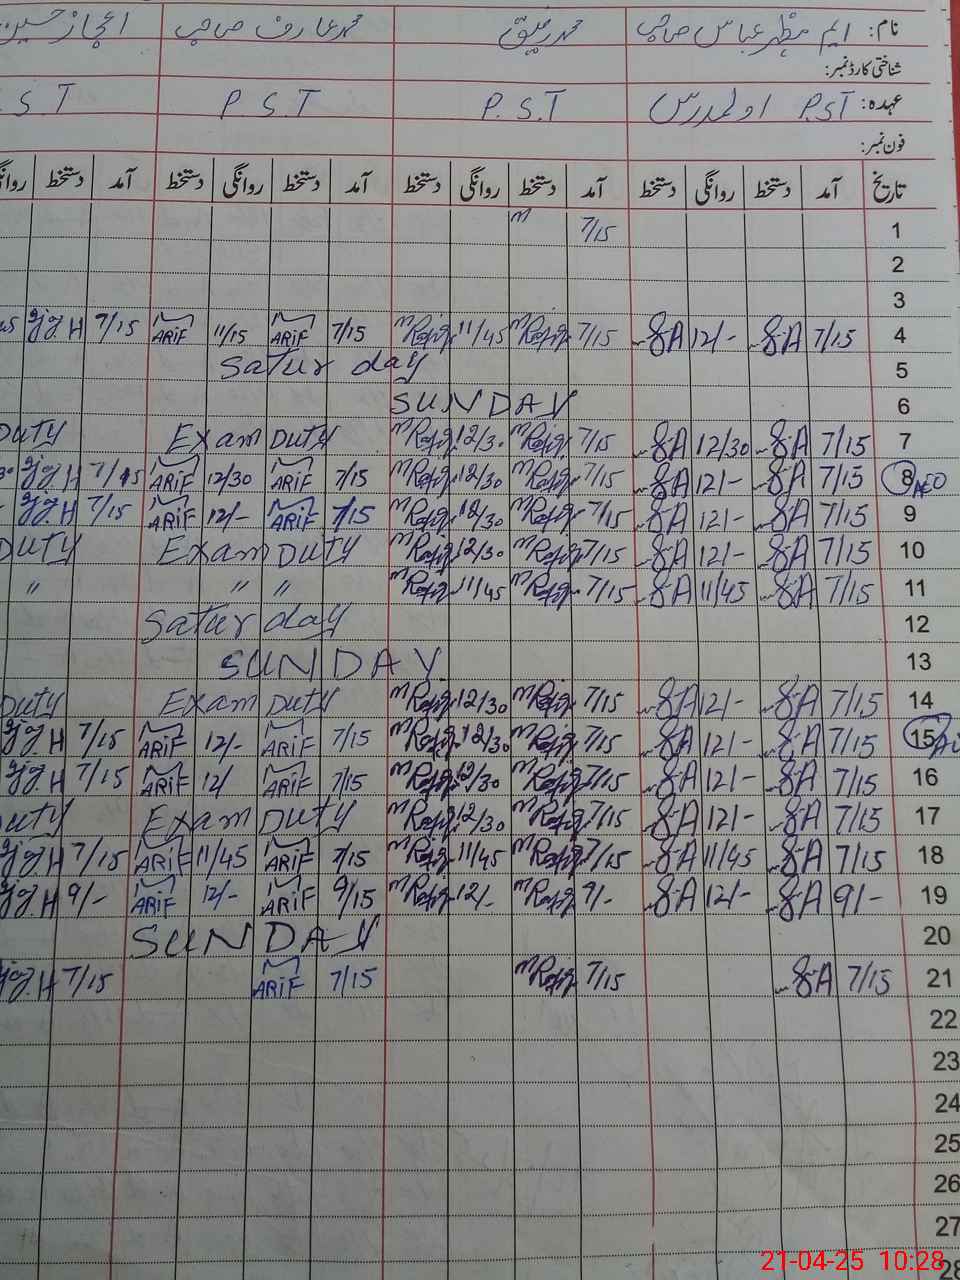 نام: ایم مظہر عباس صاحب محمد رفیق محمد عارف صاحب اعجاز حسین
شناختی کارڈ نمبر:
عہدہ: P.S.T اول مدرس P.S.T P.S.T S.T
فون نمبر:
تاریخ آمد دستخط روانگی دستخط آمد دستخط روانگی دستخط آمد دستخط روانگی دستخط آمد دستخط
1 7/15 m
2
3
4 7/15 SA 12/- SA 7/15 mRafiq 11/45 mRafiq 7/15 ARIF 11/15 ARIF 7/15
5 Saturday
6 SUNDAY
7 7/15 SA 12/30 SA 7/15 mRafiq 12/30 mRafiq Exam DUTY DUTY
8 AEO 7/15 SA 12/- SA 7/15 mRafiq 12/30 mRafiq 7/15 ARIF 12/30 ARIF 7/15
9 7/15 SA 12/- SA 7/15 mRafiq 12/30 mRafiq 7/15 ARIF 12/- ARIF 7/15
10 7/15 SA 12/- SA 7/15 mRafiq 12/30 mRafiq Exam DUTY DUTY
11 7/15 SA 11/45 SA 7/15 mRafiq 11/45 mRafiq " " "
12 Saturday
13 SUNDAY
14 7/15 SA 12/- SA 7/15 mRafiq 12/30 mRafiq Exam DUTY Duty
15 7/15 SA 12/- SA 7/15 mRafiq 12/30 mRafiq 7/15 ARIF 12/- ARIF 7/15
16 7/15 SA 12/- SA 7/15 mRafiq 12/30 mRafiq 7/15 ARIF 12/ ARIF 7/15
17 7/15 SA 12/- SA 7/15 mRafiq 12/30 mRafiq Exam DUTY uty
18 7/15 SA 11/45 SA 7/15 mRafiq 11/45 mRafiq 7/15 ARIF 11/45 ARIF 7/15
19 9/- SA 12/- SA 9/- mRafiq 12/- mRafiq 9/15 ARIF 12/- ARIF 9/-
20 SUNDAY
21 7/15 SA 7/15 mRafiq 7/15 ARIF 7/15
22
23
24
25
26
27
28
21-04-25 10:28